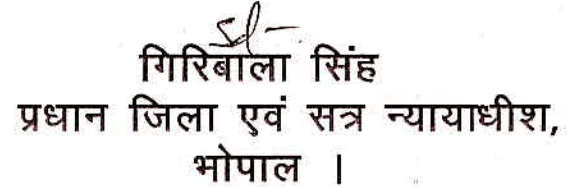 sd/-
गिरिबाला सिंह
प्रधान जिला एवं सत्र न्यायाधीश,
भोपाल ।